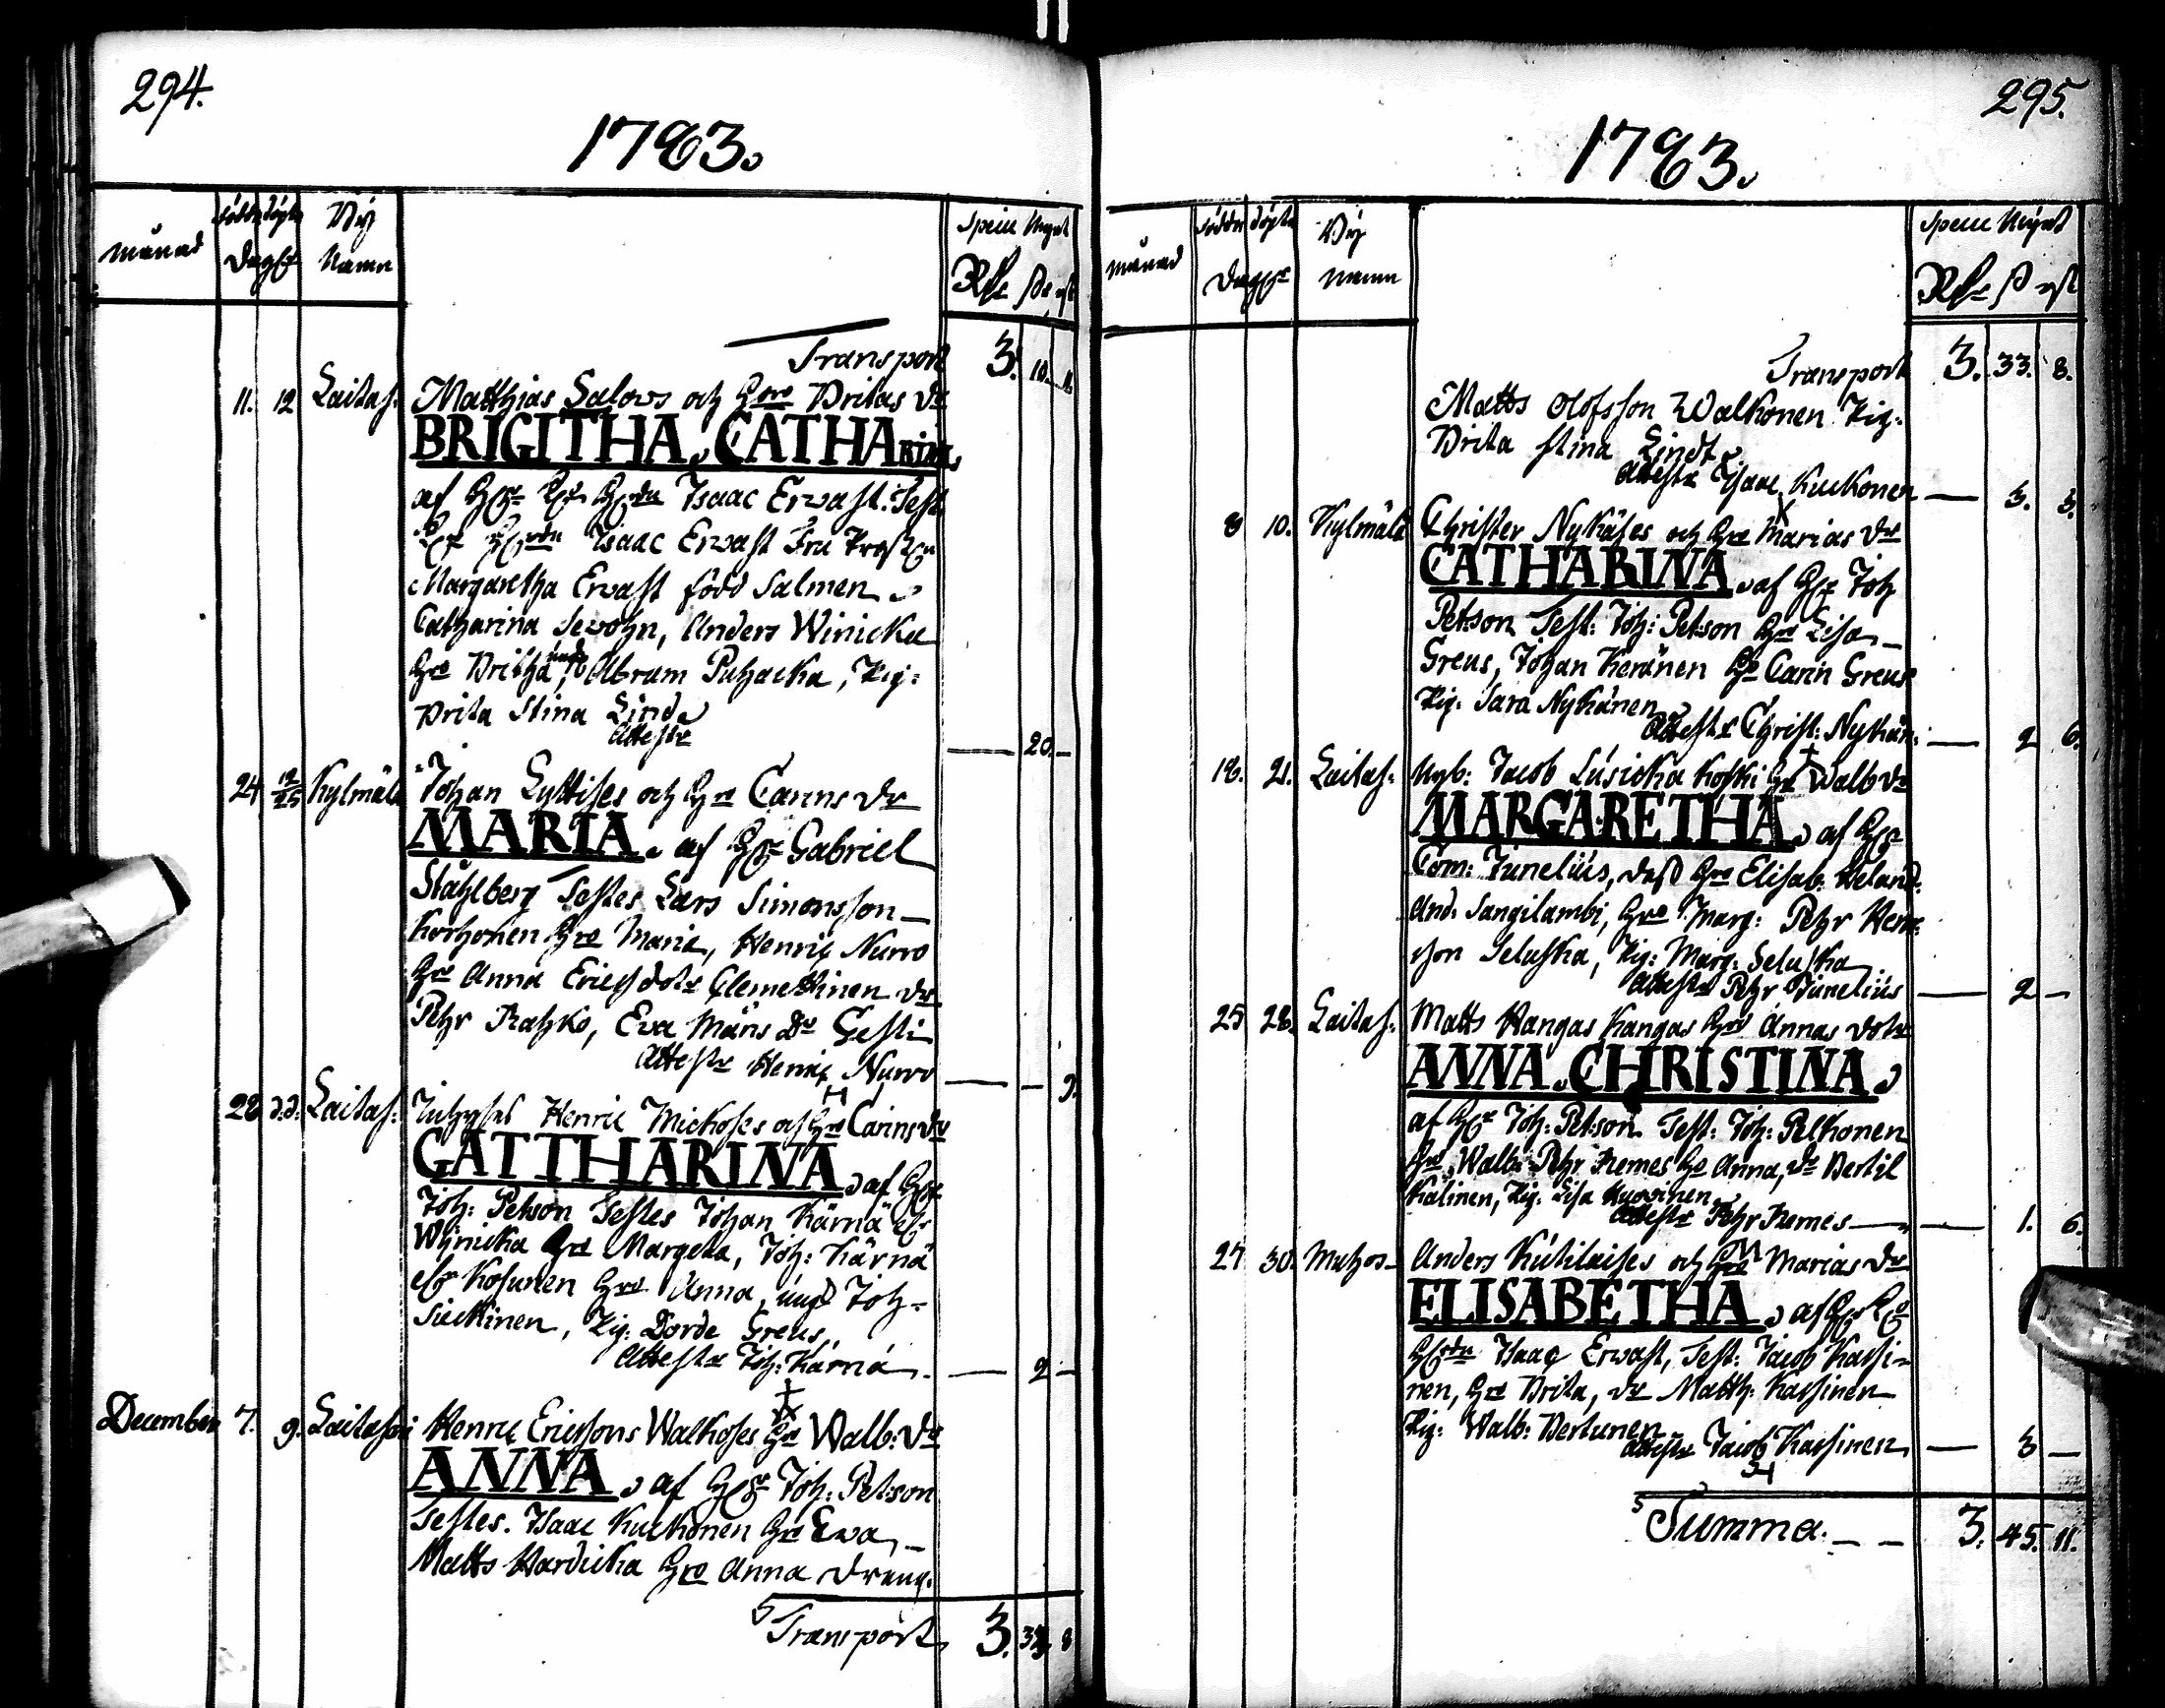 294.
1783.
månad
födde döpte
Dagar
Bÿ
Namn
Speciemynt
Rdr ß rst
Transport 3. 10. 11.
11. 12 Laitas: Matthias Salovs och Hustru Britas dr
BRIGITHA CATHARINA
af Isaac Ervast. Test.
Isaac Ervast Fru Prostin
Margaretha Ervast född Salmen
Catharina Sevohn, Anders Winicka
Hu Britha, ung Abram Puhacka, Pig:
Brita Stina Lind
Attestr — 20 —
24 12/25 Kylmäl Johan Lyttises och Hu Carins dr
MARIA af Hr Gabriel
Ståhlberg Testes Lars Simonsson
Korhonen Hu Maria, Henric Nurro
Hu Anna Ericsdotr Clemettinen dr
Pehr Ratzko, Eva Måns dr Gesti
Attestr Henric Nurro — — 9.
28 d.d. Laitas: Inhyses Henric Mickoses och Hu Carins dr
GATTHARINA af Hr
Joh: Petson Testes Johan Kärnä elr
Wÿnicka Hu Margeta, Joh: Kärnä
elr Kosunen Hu Anna, ung Joh
Sutkinen, Pig: Dorde Greus,
Attestr Joh: Kärnä — 2 —
December 7. 9. Laitasari Henric Ericssons Walkoses Hu Walb: dr
ANNA af Hr Joh: Petson
Testes. Isaac Kukkonen Hu Eva
Matts Hardicka Hu Anna dreng.
Transport 3. 33. 8
295.
1783.
månad
födde döpte
Dagar
Bÿ
namn
Specie Mÿnt
Rdr ß rst
Transport 3. 33. 8.
Matts Olofsson Walkonen Pig:
Brita Stina Lindt
Attestr Isaac Kukkonen — 3. 3.
8 10. Kylmälä Christer Nykäses och Hu Marias dr
CATHARINA af Hr Joh
Petson Test: Joh: Petson Hu Lisa
Greus, Johan Keränen Hu Carin Greus
Pig. Sara Nykänen
Attestr Christ: Nykän: — 2 6.
18. 21. Laitas: Nyb: Jacob Lusicka Koski Hu Walb dr
MARGARETHA af Hr
Com: Junelius, dess Hu Elisab: Heland:
And: Sangilambi, Hu Marg: Pehr Hen
sson Seluska, Pig: Marg: Seluska
Attestr Pehr Junelius — 2 —
25 28. Laitas: Matts Kangas Kangas Hu Annas dotr
ANNA CHRISTINA
af Hr Joh: Petson Test: Joh: Pelkonen
Hu Walb: Pehr Remes Hu Anna, dr Bertil
Kälinen, Pig. Lisa
Attestr Pehr Remes — 1. 6.
27 30. Muhos Anders Kukilaises och Hu Marias dr
ELISABETHA af
Isaac Ervast, Test: Jacob Karsi-
nen, Hu Brita, dr Matth: Karsinen
Pig: Walb: Bertunen
Attestr Jacob Karsinen — 3 —
Summa. — — 3. 45. 11.